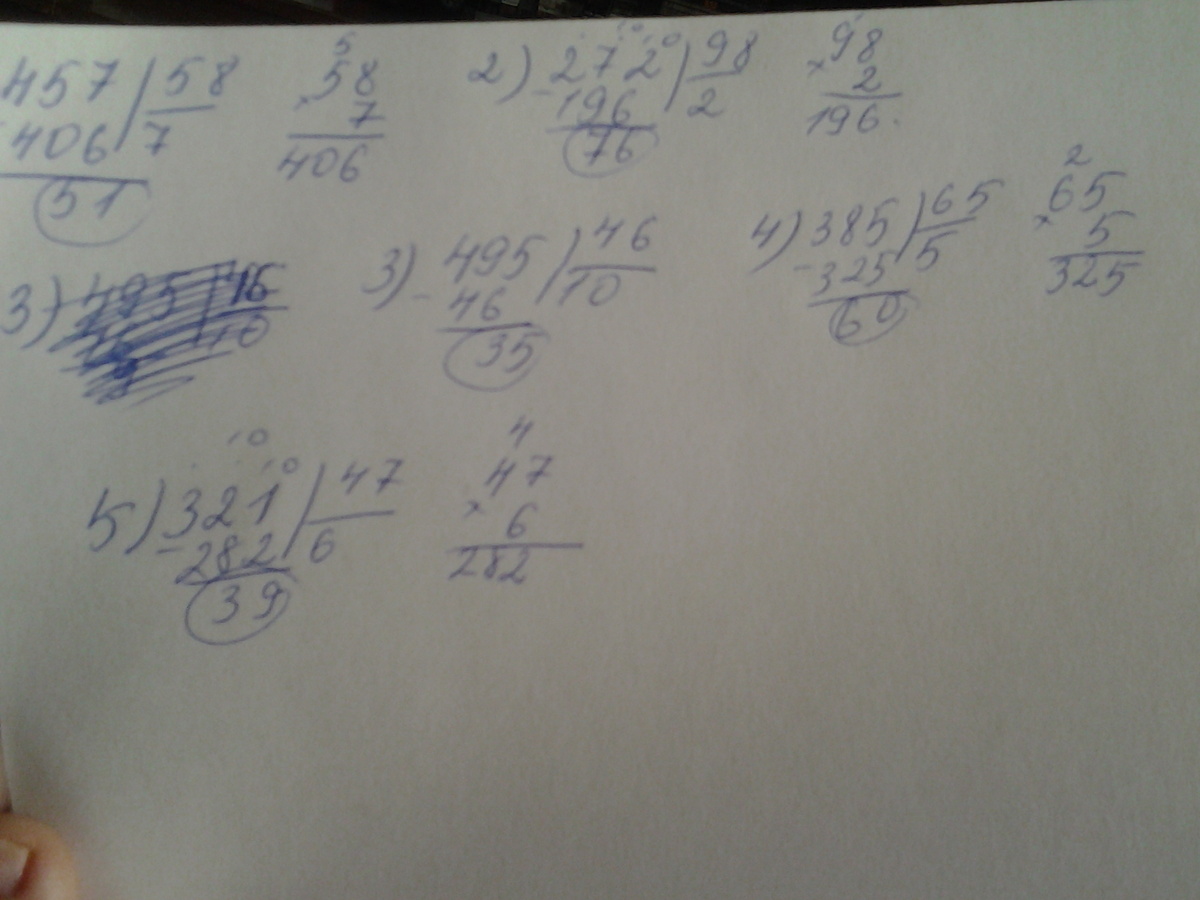 457 58 5 58
406 7 × 7
51 406
2) - 272 10 10 98 × 98
196 2 2
76 196
3)
3) - 495 46
46 10
35
4) - 385 65 2 × 65
325 5 5
60 325
5) - 321 10 10 47 4 × 47
282 6 6
39 282